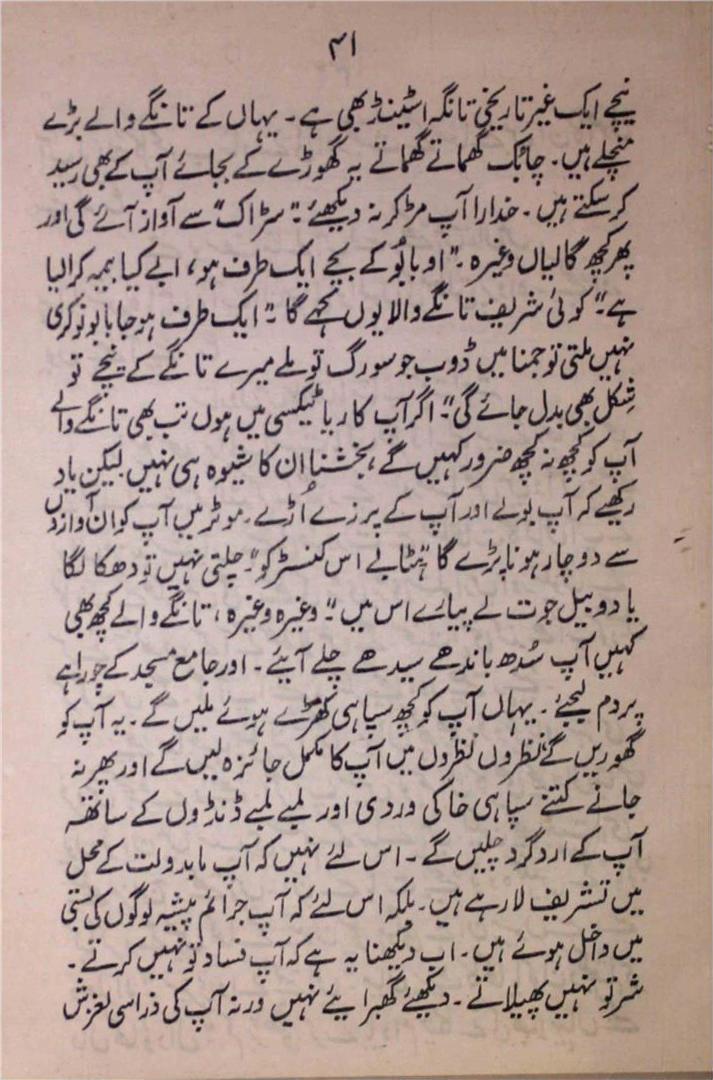 ۴۱
نیچے ایک غیر تاریخی تانگہ اسٹینڈ بھی ہے۔ یہاں کے تانگے والے بڑے
منچلے ہیں۔ چابک گھماتے گھماتے یہ گھوڑے کے بجائے آپ کے بھی رسید
کر سکتے ہیں۔ خدارا آپ مڑ کر نہ دیکھئے۔ "سڑاک" سے آواز آئے گی اور
پھر کچھ گالیاں وغیرہ۔ "او بابُو کے بچے ایک طرف ہو، ابے کیا بیمہ کرا لیا
ہے۔" کوئی شریف تانگے والا یوں کہے گا۔ "ایک طرف ہو جا بابو نوکری
نہیں ملتی تو جمنا میں ڈوب جو سورگ تو ملے میرے تانگے کے نیچے تو
شکل بھی بدل جائے گی"۔ اگر آپ کار یا ٹیکسی میں ہوں تب بھی تانگے والے
آپ کو کچھ نہ کچھ ضرور کہیں گے، بخشنا اُن کا شیوہ ہی نہیں لیکن یاد
رکھیے کہ آپ بولے اور آپ کے پرزے اُڑے۔ موٹر میں آپ کو اِن آوازوں
سے دوچار ہونا پڑے گا "ہٹا بے اس کنسٹر کو"۔ چلتی نہیں تو دھکا لگا
یا دو بیل جوت لے پیارے اس میں"۔ وغیرہ وغیرہ، تانگے والے کچھ بھی
کہیں آپ سُدھ باندھے سیدھے چلے آیئے۔ اور جامع مسجد کے چوراہے
پر دم لیجئے۔ یہاں آپ کو کچھ سپاہی کھڑے ہوئے ملیں گے۔ یہ آپ کو
گھوریں گے نظروں نظروں میں آپ کا مکمل جائزہ لیں گے اور پھر نہ
جانے کتنے سپاہی خاکی وردی اور لمبے لمبے ڈنڈوں کے ساتھ
آپ کے اردگرد چلیں گے۔ اس لئے نہیں کہ آپ مابدولت کے محل
میں تشریف لا رہے ہیں۔ بلکہ اس لئے کہ آپ جرائم پیشہ لوگوں کی بستی
میں داخل ہوئے ہیں۔ اب دیکھنا یہ ہے کہ آپ فساد تو نہیں کرتے۔
شر تو نہیں پھیلاتے۔ دیکھئے گھبرایئے نہیں ورنہ آپ کی ذرا سی لغزش